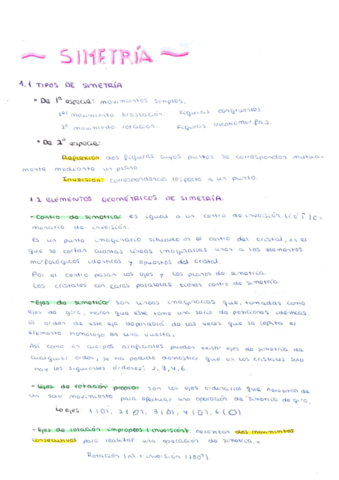 ~ SIMETRÍA ~
1.1 TIPOS DE SIMETRÍA
• De 1ª especie: movimientos simples.
1er movimiento traslación. Figuras congruentes
2º movimiento rotación. Figuras
• De 2ª especie:
Reflexión dos figuras cuyos puntos se corresponden mutua-
mente mediante un plano.
Inversión: correspondencia respecto a un punto.
1.2 ELEMENTOS GEOMÉTRICOS DE SIMETRÍA.
- Centro de simetría: es igual a un centro de inversión
de inversión.
Es un punto imaginario situado en el centro del cristal, en el
que se cortan cuantas líneas imaginarias unen a los elementos
morfológicos idénticos y opuestos del cristal.
Por el centro pasan los ejes y los planos de simetría.
Los cristales con caras paralelas tienen centro de simetría.
- Ejes de simetría: son líneas imaginarias que, tomadas como
ejes de giro, hacen que este tome una serie de posiciones idénticas.
El orden de ese eje dependerá de las veces que se repita el
elemento homólogo en una vuelta.
Así como en cuerpos cualquiera pueden existir ejes de simetría de
cualquier orden, se ha podido demostrar que en los cristales solo
hay los siguientes órdenes: 2, 3, 4, 6.
- Ejes de rotación propios: son los ejes ordinarios que necesitan de
un solo movimiento para efectuar una operación de simetría de giro.
↳ Ejes 1 (), 2 (), 3 (), 4 (), 6 ()
- Ejes de rotación impropios (inversión): necesitan dos movimientos
consecutivos para realizar una operación de simetría.
Rotación (n) + inversión (180º)